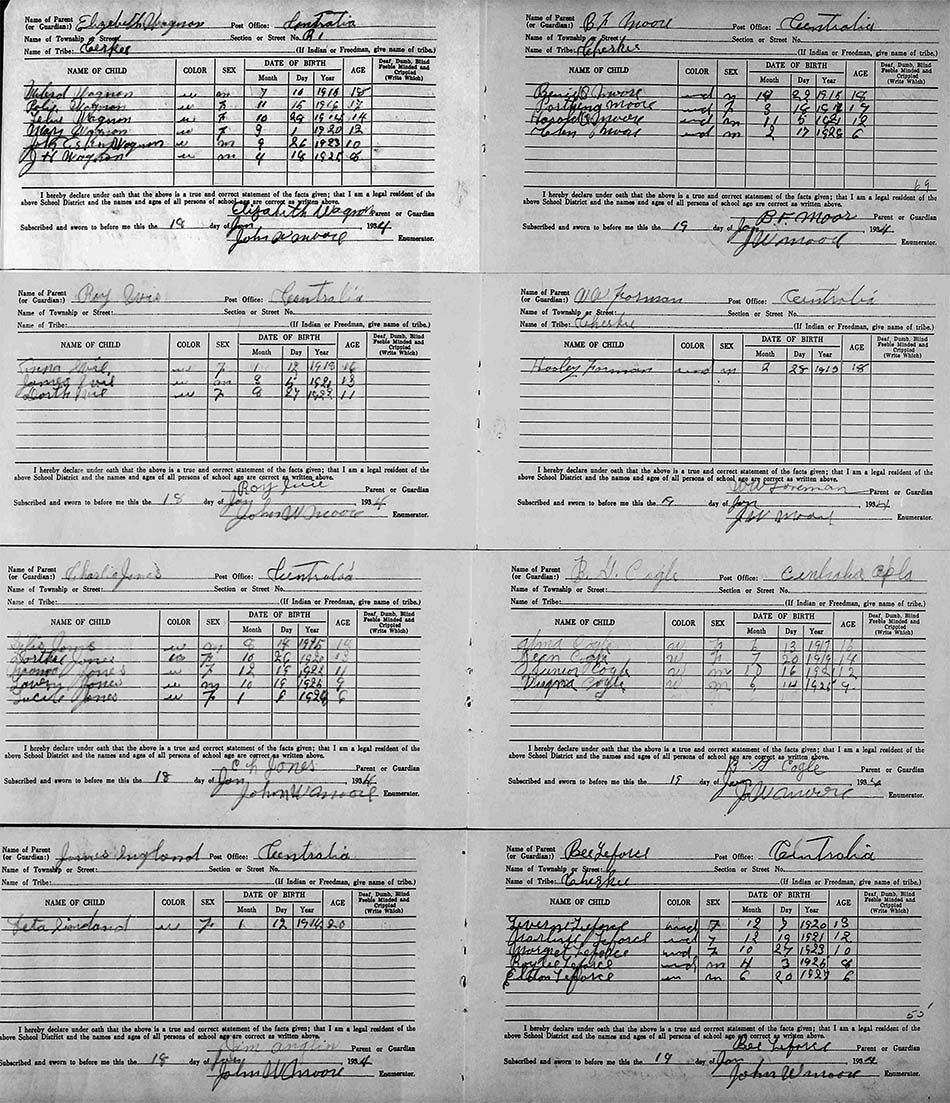 Name of Parent
(or Guardian:) Elizabeth Wagnon Post Office: Centralia
Name of Township or Street: Section or Street No. R1
Name of Tribe: (If Indian or Freedman, give name of tribe.)
NAME OF CHILD COLOR SEX DATE OF BIRTH AGE Deaf, Dumb, Blind Feeble Minded and Crippled (Write Which)
Month Day Year
Wagnon w m 7 10 1915 18
Wagnon w f 11 15 1916 17
Wagnon w f 10 29 14
Mary Wagnon w f 9 1 1920 13
Wagnon w m 9 26 1923 10
J H Wagnon w m 4 18 1925 8
I hereby declare under oath that the above is a true and correct statement of the facts given; that I am a legal resident of the
above School District and the names and ages of all persons of school age are correct as written above.
Elizabeth Wagnon Parent or Guardian
Subscribed and sworn to before me this the 18 day of Jan 1934
John W Moore Enumerator.
Name of Parent
(or Guardian:) B F Moore Post Office: Centralia
Name of Township or Street: Section or Street No.
Name of Tribe: Cherkie (If Indian or Freedman, give name of tribe.)
NAME OF CHILD COLOR SEX DATE OF BIRTH AGE Deaf, Dumb, Blind Feeble Minded and Crippled (Write Which)
Month Day Year
Moore m 29 1915 18
Moore f 3 17
Harold B Moore m 11 5 1921 12
Moore 2 17 6
69
I hereby declare under oath that the above is a true and correct statement of the facts given; that I am a legal resident of the
above School District and the names and ages of all persons of school age are correct as written above.
B.F. Moor Parent or Guardian
Subscribed and sworn to before me this the 19 day of Jan 1934
J W moore Enumerator.
Name of Parent
(or Guardian:) Roy Post Office: Centralia
Name of Township or Street: Section or Street No.
Name of Tribe: (If Indian or Freedman, give name of tribe.)
NAME OF CHILD COLOR SEX DATE OF BIRTH AGE Deaf, Dumb, Blind Feeble Minded and Crippled (Write Which)
Month Day Year
w f 1 12 16
James w m 13
w f 8 27 1922 11
I hereby declare under oath that the above is a true and correct statement of the facts given; that I am a legal resident of the
above School District and the names and ages of all persons of school age are correct as written above.
Roy Parent or Guardian
Subscribed and sworn to before me this the 18 day of Jan 1934
John W Moore Enumerator.
Name of Parent
(or Guardian:) W W Forman Post Office: Centralia
Name of Township or Street: Section or Street No.
Name of Tribe: Cherkie (If Indian or Freedman, give name of tribe.)
NAME OF CHILD COLOR SEX DATE OF BIRTH AGE Deaf, Dumb, Blind Feeble Minded and Crippled (Write Which)
Month Day Year
Hooley Forman m 2 28 1915 18
I hereby declare under oath that the above is a true and correct statement of the facts given; that I am a legal resident of the
above School District and the names and ages of all persons of school age are correct as written above.
W W Foreman Parent or Guardian
Subscribed and sworn to before me this the 19 day of Jan 1934
J W Moore Enumerator.
Name of Parent
(or Guardian:) Charlie Jones Post Office: Centralia
Name of Township or Street: Section or Street No.
Name of Tribe: (If Indian or Freedman, give name of tribe.)
NAME OF CHILD COLOR SEX DATE OF BIRTH AGE Deaf, Dumb, Blind Feeble Minded and Crippled (Write Which)
Month Day Year
Jones w m 8 1915 18
Jones w f 10 26 1920 13
Jones w f 12 19 11
Jones w m 10 19 9
Jones w f 1 6
I hereby declare under oath that the above is a true and correct statement of the facts given; that I am a legal resident of the
above School District and the names and ages of all persons of school age are correct as written above.
C h Jones Parent or Guardian
Subscribed and sworn to before me this the 18 day of Jan 1934
John W moore Enumerator.
Name of Parent
(or Guardian:) B. G Cogle Post Office: Centralia Okla
Name of Township or Street: Section or Street No.
Name of Tribe: (If Indian or Freedman, give name of tribe.)
NAME OF CHILD COLOR SEX DATE OF BIRTH AGE Deaf, Dumb, Blind Feeble Minded and Crippled (Write Which)
Month Day Year
Cogle W f 6 13 1917 16
Cogle W f 7 20 1919 14
Junior Cogle W m 16 1921 12
Cogle W m 14 9
I hereby declare under oath that the above is a true and correct statement of the facts given; that I am a legal resident of the
above School District and the names and ages of all persons of school age are correct as written above.
B G Cogle Parent or Guardian
Subscribed and sworn to before me this the 19 day of Jan 1934
J W moore Enumerator.
Name of Parent
(or Guardian:) James England Post Office: Centralia
Name of Township or Street: Section or Street No.
Name of Tribe: (If Indian or Freedman, give name of tribe.)
NAME OF CHILD COLOR SEX DATE OF BIRTH AGE Deaf, Dumb, Blind Feeble Minded and Crippled (Write Which)
Month Day Year
w f 1 12 1914 20
I hereby declare under oath that the above is a true and correct statement of the facts given; that I am a legal resident of the
above School District and the names and ages of all persons of school age are correct as written above.
Parent or Guardian
Subscribed and sworn to before me this the 18 day of 1934
John W moore Enumerator.
Name of Parent
(or Guardian:) Bee Leforce Post Office: Centralia
Name of Township or Street: Section or Street No.
Name of Tribe: Cherkie (If Indian or Freedman, give name of tribe.)
NAME OF CHILD COLOR SEX DATE OF BIRTH AGE Deaf, Dumb, Blind Feeble Minded and Crippled (Write Which)
Month Day Year
Leforce f 12 9 1920 13
Leforce f 12 19 1921 12
Margret Leforce f 10 27 1923 10
Leforce m 4 3 1925 8
Elton Leforce m 6 20 1927 6
50
I hereby declare under oath that the above is a true and correct statement of the facts given; that I am a legal resident of the
above School District and the names and ages of all persons of school age are correct as written above.
Bee Leforce Parent or Guardian
Subscribed and sworn to before me this the 19 day of Jan 1934
John W moore Enumerator.